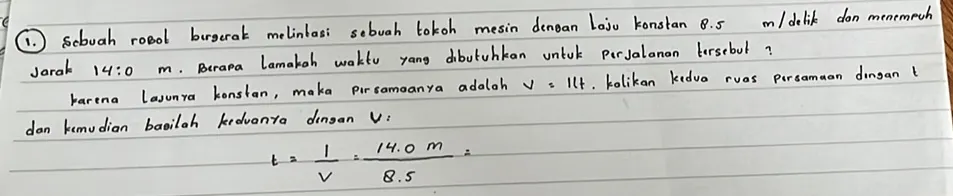 1. Sebuah robot bürgerak melintasi sebuah tokoh mesin dengan laju konstan 8.5 m/detik dan menempuh
Jarak 14:0 m. Berapa lamakah waktu yang dibutuhkan untuk perjalanan tersebut ?
karena lajunya konstan, maka persamaanya adalah V = l/t. kalikan kedua ruas persamaan dengan t
dan kemudian bagilah keduanya dengan V:
t = l/V = 14.0 m/8.5 =